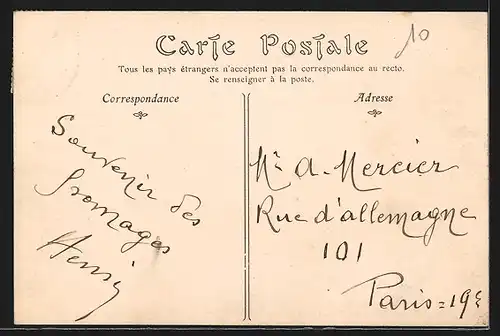 Carte Postale
10
Tous les pays étrangers n'acceptent pas la correspondance au recto.
Se renseigner à la poste.
Correspondance
Adresse
Souvenir des
fromages
Henri
Mr A. Mercier
Rue d'allemagne
101
Paris=19e